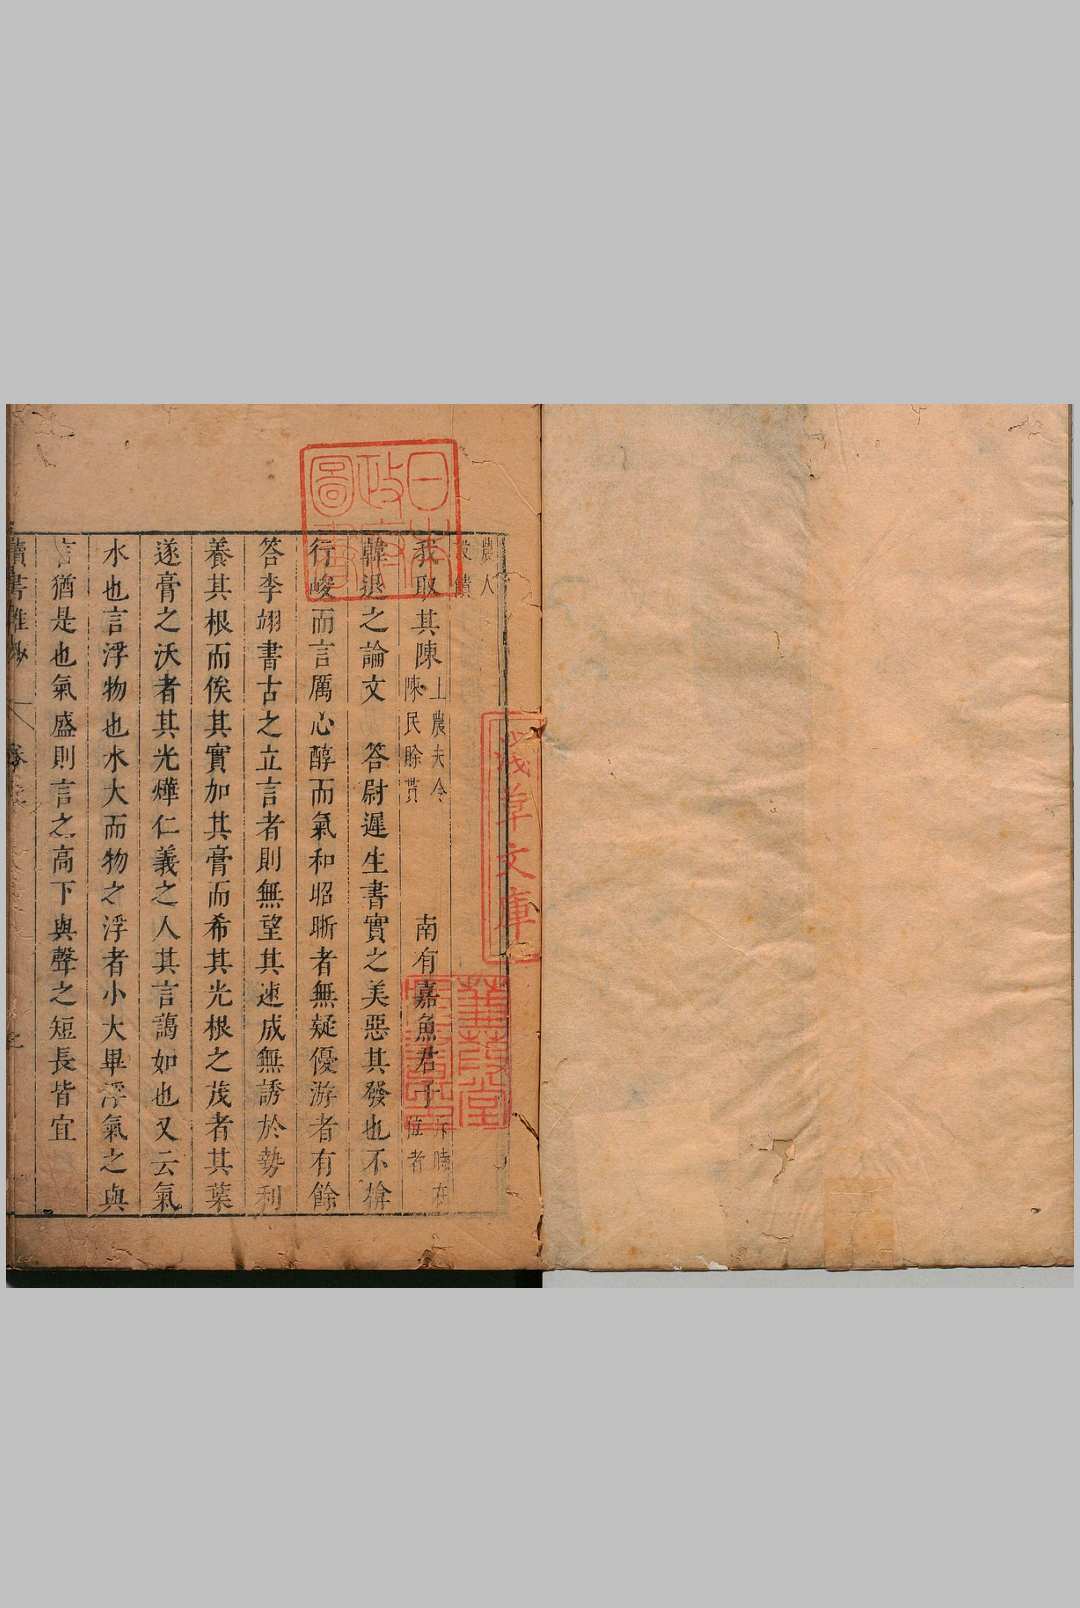 農人
我取其陳 上農夫令陳民賒貰 南有嘉魚君子 斥時在位者
韓退之論文 答尉遲生書實之美惡其發也不揜
行峻而言厲心醇而氣和昭晰者無疑優游者有餘
答李翊書古之立言者則無望其速成無誘於勢利
養其根而俟其實加其膏而希其光根之茂者其葉
遂膏之沃者其光燁仁義之人其言藹如也又云氣
水也言浮物也水大而物之浮者小大畢浮氣之與
言猶是也氣盛則言之高下與聲之短長皆宜
讀書雜抄 卷
日本政府圖書
淺草文庫
蒹葭堂